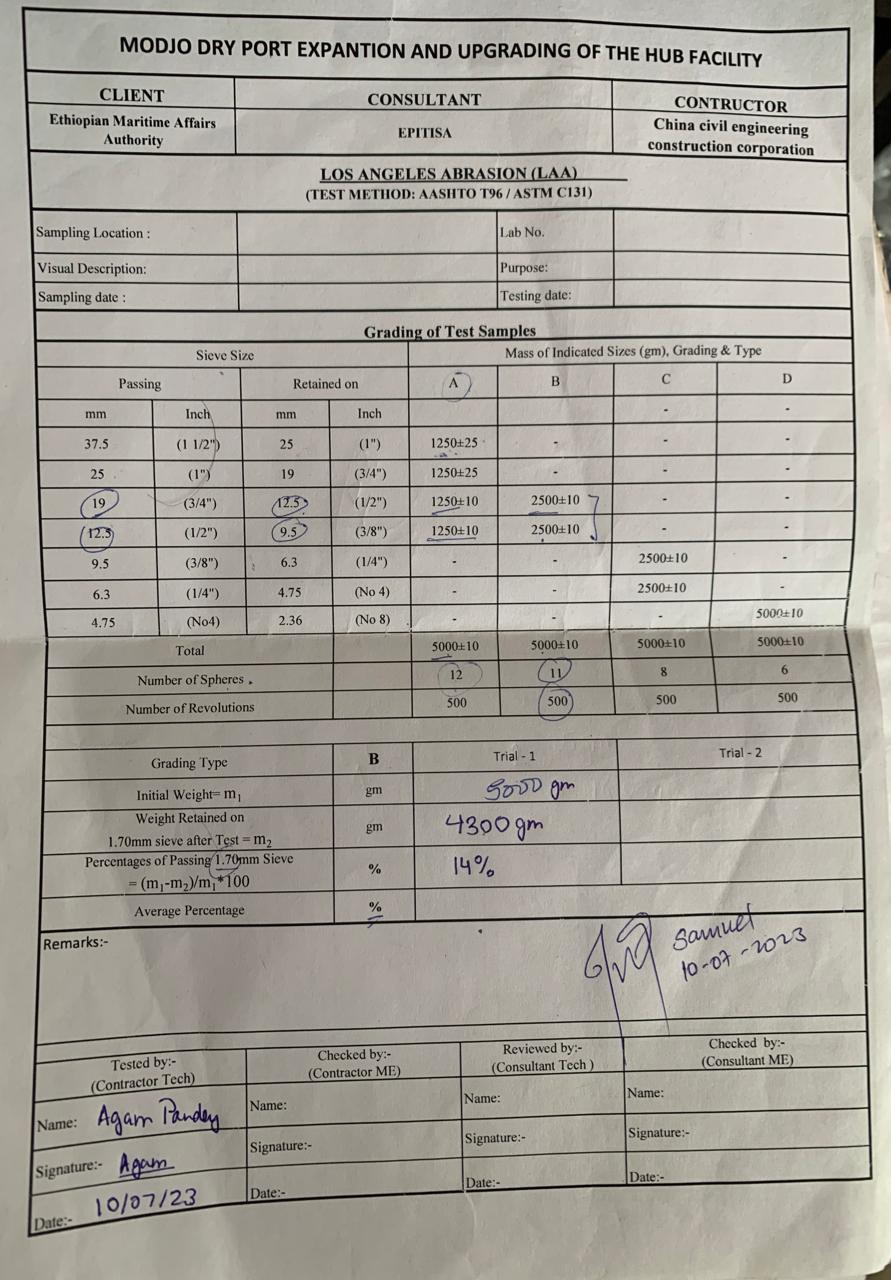 MODJO DRY PORT EXPANTION AND UPGRADING OF THE HUB FACILITY
CLIENT CONSULTANT CONTRUCTOR
Ethiopian Maritime Affairs Authority EPITISA China civil engineering construction corporation
LOS ANGELES ABRASION (LAA)
(TEST METHOD: AASHTO T96 / ASTM C131)
Sampling Location : Lab No.
Visual Description: Purpose:
Sampling date : Testing date:
Grading of Test Samples
Sieve Size Mass of Indicated Sizes (gm), Grading & Type
Passing Retained on A B C D
mm Inch mm Inch - -
37.5 (1 1/2") 25 (1") 1250±25 - - -
25 (1") 19 (3/4") 1250±25 - - -
19 (3/4") 12.5 (1/2") 1250±10 2500±10 - -
12.5 (1/2") 9.5 (3/8") 1250±10 2500±10 - -
9.5 (3/8") 6.3 (1/4") - - 2500±10 -
6.3 (1/4") 4.75 (No 4) - - 2500±10 -
4.75 (No4) 2.36 (No 8) - - - 5000±10
Total 5000±10 5000±10 5000±10 5000±10
Number of Spheres 12 11 8 6
Number of Revolutions 500 500 500 500
Grading Type B Trial - 1 Trial - 2
Initial Weight= m₁ gm 5000 gm
Weight Retained on
1.70mm sieve after Test = m₂ gm 4300 gm
Percentages of Passing 1.70mm Sieve
= (m₁-m₂)/m₁*100 % 14%
Average Percentage %
Remarks:-
Samuel
10-07-2023
Tested by:- Checked by:- Reviewed by:- Checked by:-
(Contractor Tech) (Contractor ME) (Consultant Tech ) (Consultant ME)
Name: Agam Pandey Name: Name: Name:
Signature:- Agam Signature:- Signature:- Signature:-
Date:- 10/07/23 Date:- Date:- Date:-